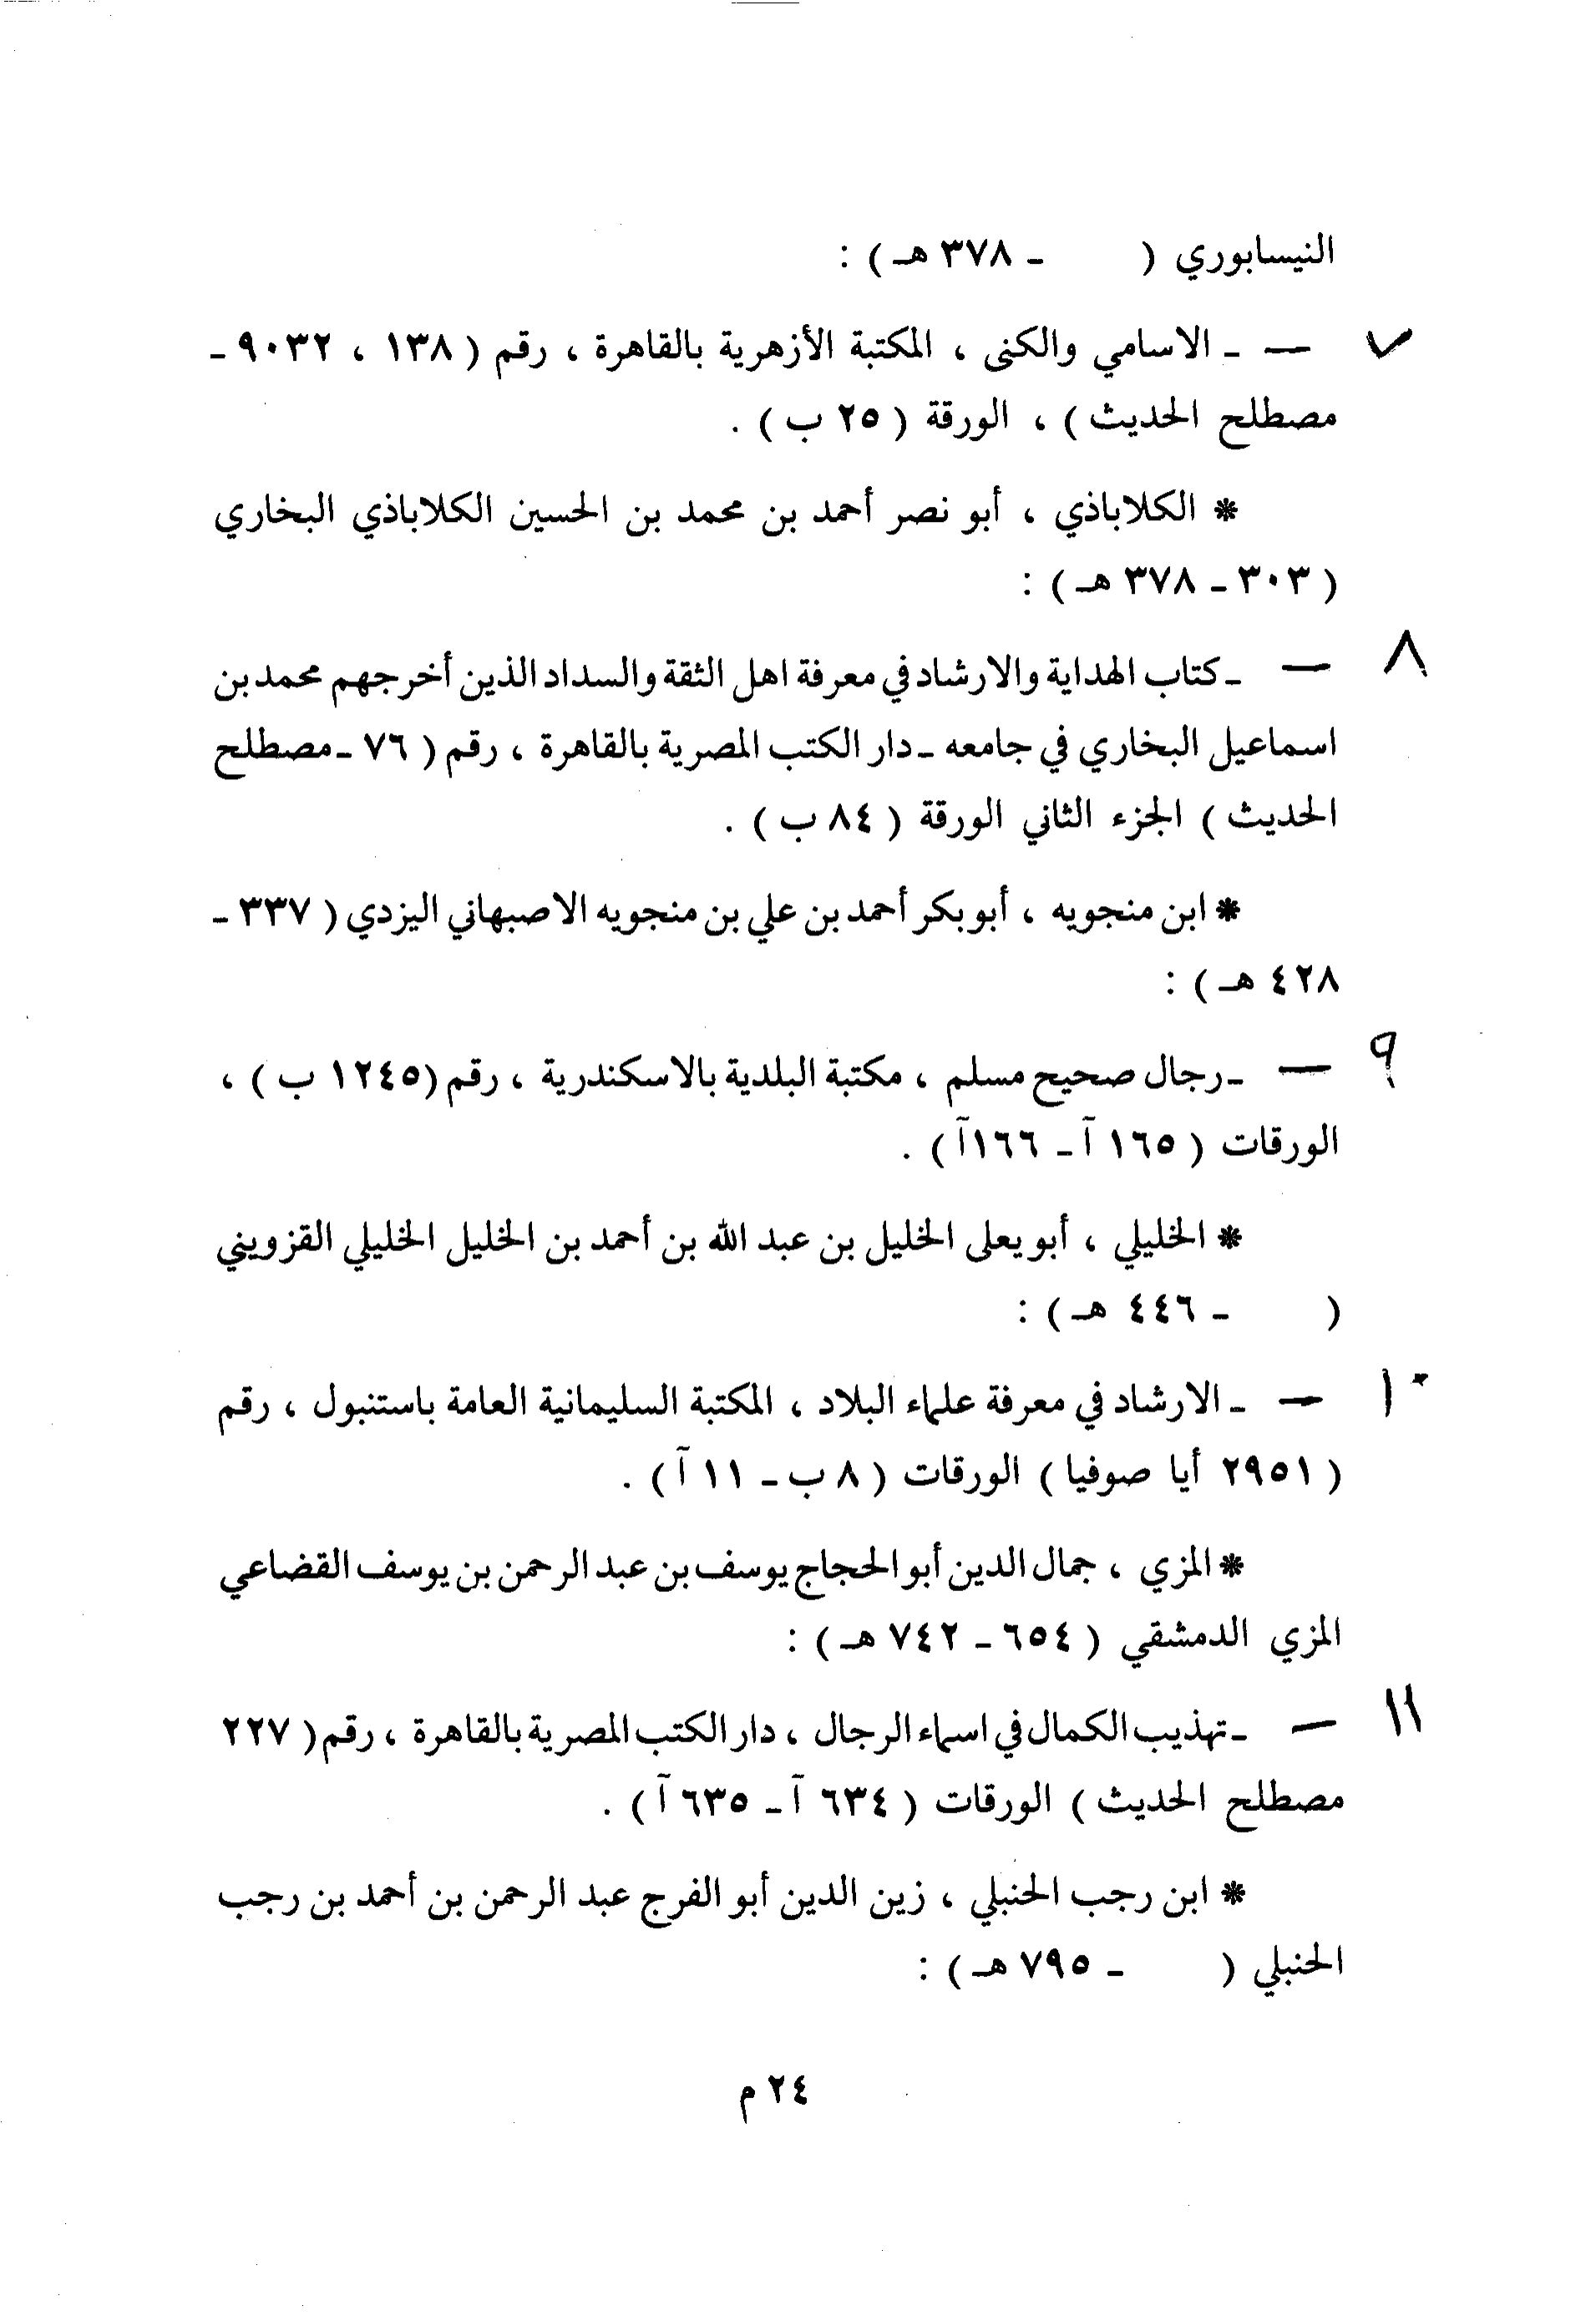 النيسابوري ( - ٣٧٨ هـ ) :
٧ — ـ الاسامي والكنى ، المكتبة الأزهرية بالقاهرة ، رقم ( ١٣٨ ، ٩٠٣٢ -
مصطلح الحديث ) ، الورقة ( ٢٥ ب ) .
* الكلاباذي ، أبو نصر أحمد بن محمد بن الحسين الكلاباذي البخاري
( ٣٠٣ - ٣٧٨ هـ ) :
٨ — ـ كتاب الهداية والارشاد في معرفة اهل الثقة والسداد الذين أخرجهم محمد بن
اسماعيل البخاري في جامعه ـ دار الكتب المصرية بالقاهرة ، رقم ( ٧٦ ـ مصطلح
الحديث ) الجزء الثاني الورقة ( ٨٤ ب ) .
* ابن منجويه ، أبو بكر أحمد بن علي بن منجويه الاصبهاني اليزدي ( ٣٣٧ -
٤٢٨ هـ ) :
٩ — ـ رجال صحيح مسلم ، مكتبة البلدية بالاسكندرية ، رقم (١٢٤٥ ب ) ،
الورقات ( ١٦٥ آ - ١٦٦آ ) .
* الخليلي ، أبو يعلى الخليل بن عبد الله بن أحمد بن الخليل الخليلي القزويني
( - ٤٤٦ هـ ) :
١٠ — ـ الارشاد في معرفة علماء البلاد ، المكتبة السليمانية العامة باستنبول ، رقم
( ٢٩٥١ أيا صوفيا ) الورقات ( ٨ ب - ١١ آ ) .
* المزي ، جمال الدين أبو الحجاج يوسف بن عبد الرحمن بن يوسف القضاعي
المزي الدمشقي ( ٦٥٤ - ٧٤٢ هـ ) :
١١ — ـ تهذيب الكمال في اسماء الرجال ، دار الكتب المصرية بالقاهرة ، رقم ( ٢٢٧
مصطلح الحديث ) الورقات ( ٦٣٤ آ - ٦٣٥ آ ) .
* ابن رجب الحنبلي ، زين الدين أبو الفرج عبد الرحمن بن أحمد بن رجب
الحنبلي ( - ٧٩٥ هـ ) :
٢٤ م